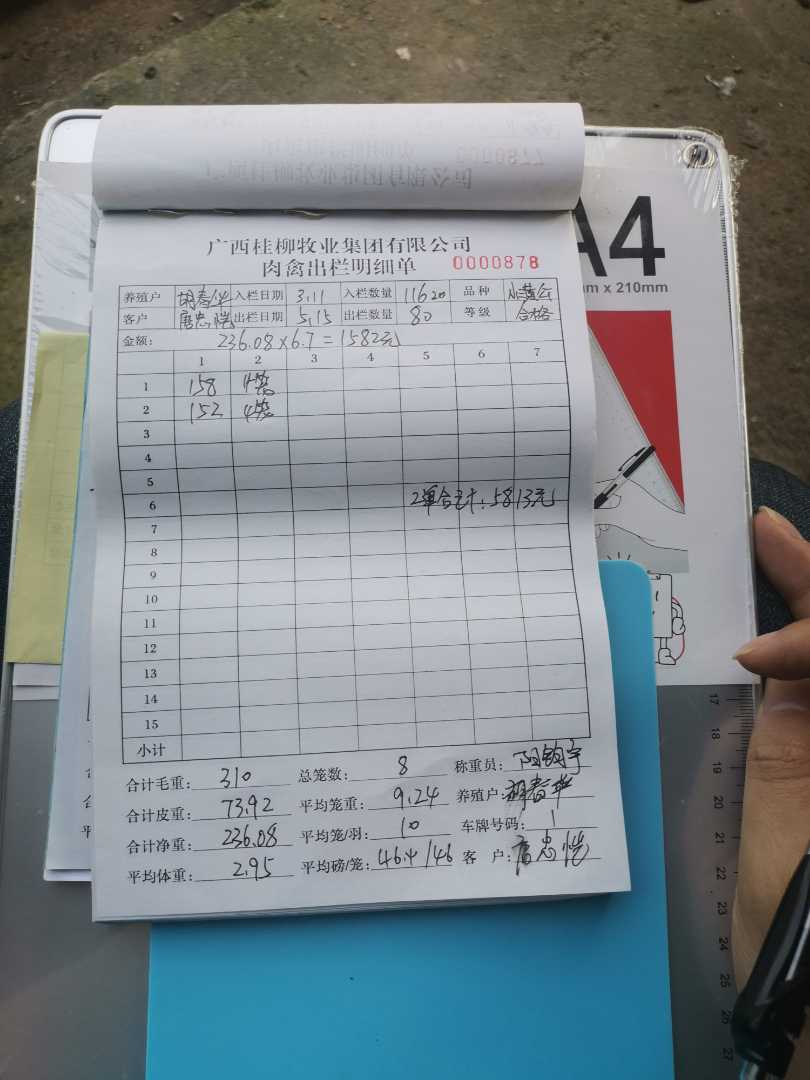 广西桂柳牧业集团有限公司
肉禽出栏明细单 0000878
养殖户 胡春华 入栏日期 3.11 入栏数量 11620 品种
客户 唐忠恺 出栏日期 5.15 出栏数量 80 等级 合格
金额: 236.08×6.7=1582元
1 2 3 4 5 6 7
1 158 4笼
2 152 4笼
3
4
5
6 2单合计:5813元
7
8
9
10
11
12
13
14
15
小计
合计毛重: 310 总笼数: 8 称重员:
合计皮重: 73.92 平均笼重: 9.24 养殖户: 胡春华
合计净重: 236.08 平均笼/羽: 10 车牌号码: 1
平均体重: 2.95 平均磅/笼: 46.4/46 客 户: 唐忠恺
A4
m x 210mm
17
18
19
20
21
22
23
24
25
26
27